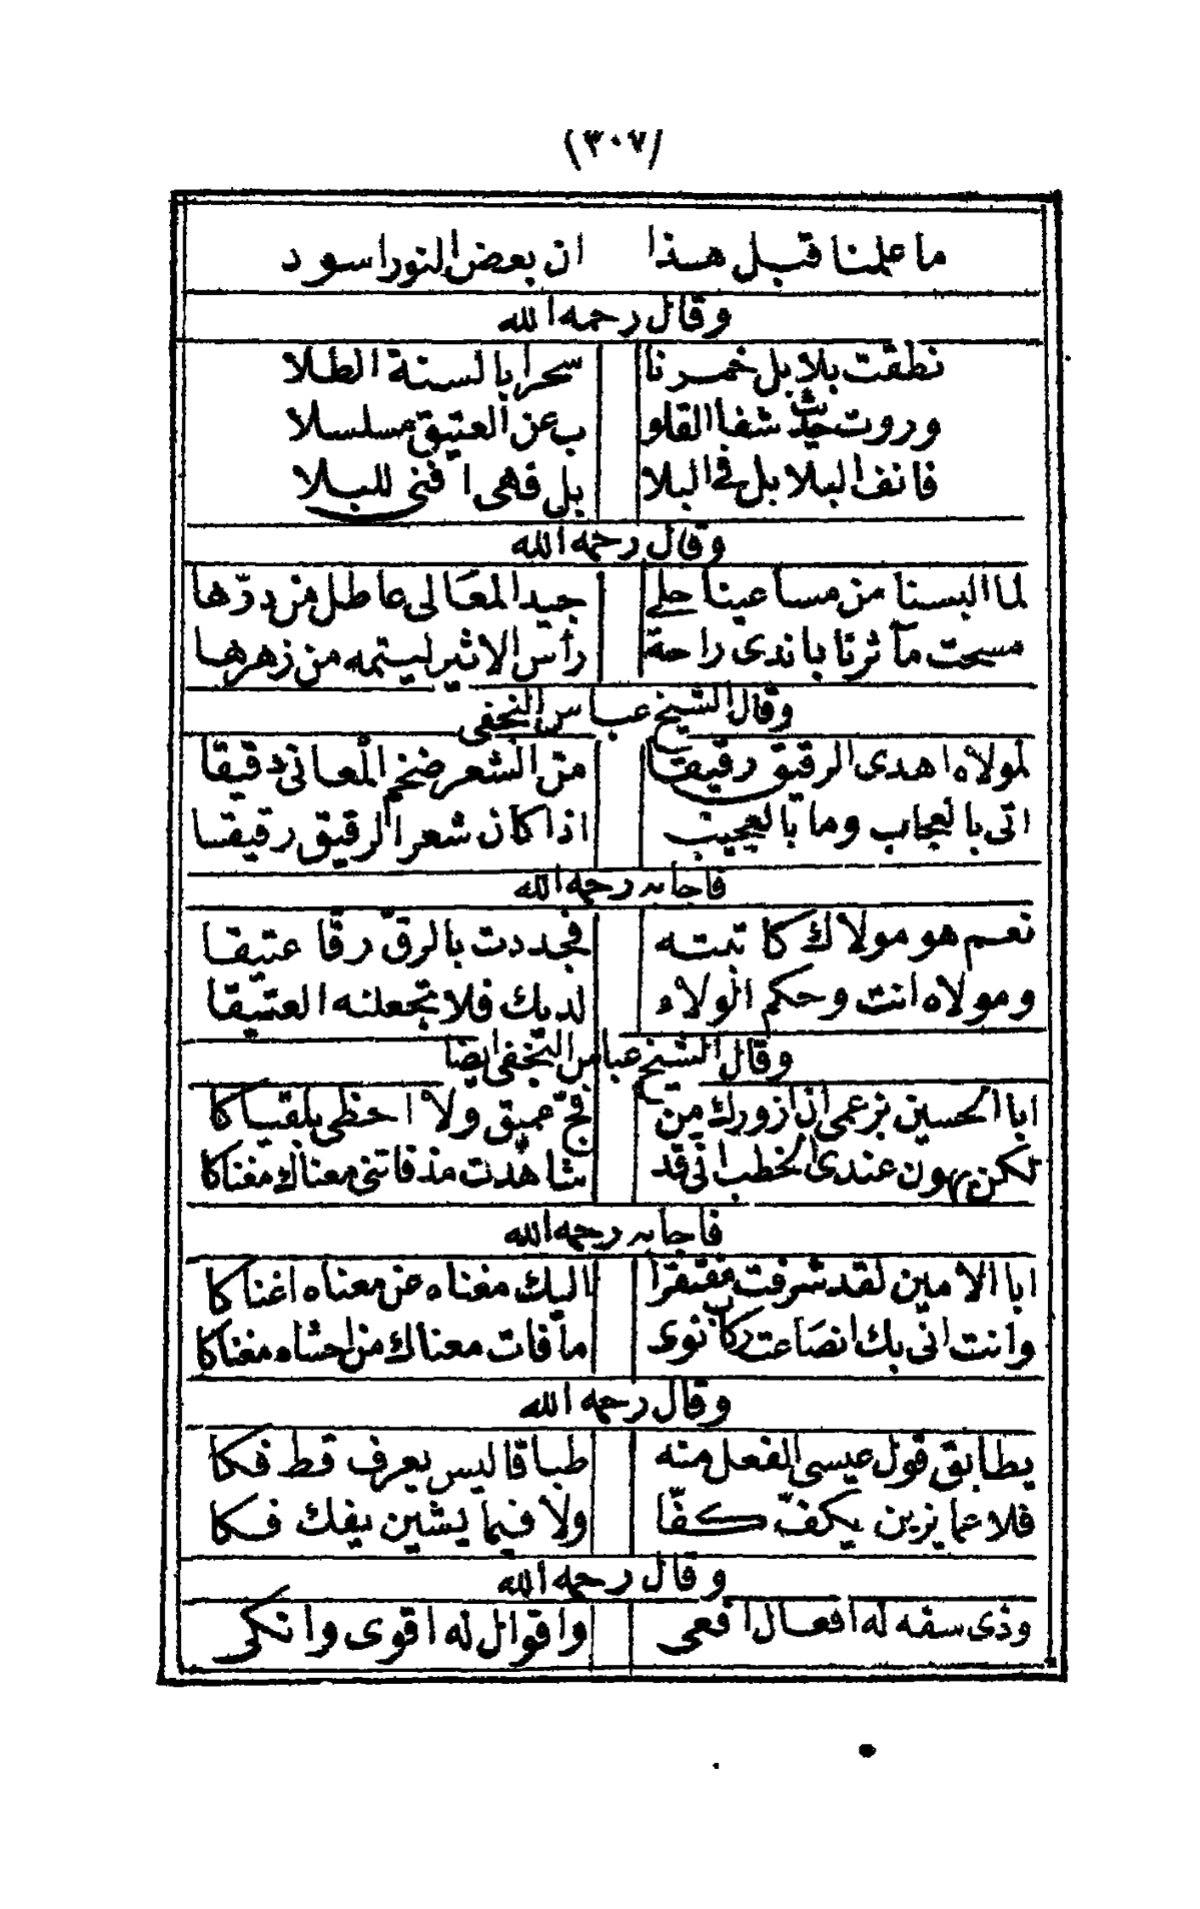 (٣٠٧)
ما علمنا قبل هذا ان بعض النور اسود
وقال رحمه الله
نطقت بلابل خمرنا سحرا بالسنة الطلا
وروت حديث شفا القلو ب عن العتيق مسلسلا
فانف البلابل في البلا بل فهى افنى للبلا
وقال رحمه الله
لما البسنا من مساعينا حلى جيد المعالى عاطل من درّها
مسحت مآثرنا باندى راحة رأس الاثير ليتمه من زهرها
وقال الشيخ عباس النجفى
لمولاه اهدى الرقيق رقيقا من الشعر ضخم المعانى دقيقا
اتى بالعجاب وما بالعجيب اذا كان شعر الرقيق رقيقا
فاجابه رحمه الله
نعم هو مولاك كاتبته فجددت بالرقّ رقا عتيقا
ومولاه انت وحكم الولاء لديك فلا تجعلنه العتيقا
وقال الشيخ عباس النجفى ايضا
ابا الحسين بزعمى ان ازورك من فجّ عميق ولا احظى بلقياكا
لكن يهون عندى الخطب انى قد شاهدت مذ فاتنى معناك مغناكا
فاجابه رحمه الله
ابا الامين لقد شرفت مفتقرا اليك مغناه عن معناه اغناكا
وانت انى بك انصاعت ركاب نوى ما فات معناك من احشاه مغناكا
وقال رحمه الله
يطابق قول عيسى الفعل منه طباقا ليس يعرف قط فكا
فلا عما يزين يكفّ كفّا ولا فيما يشين يفك فكا
وقال رحمه الله
وذى سفه له افعال افعى واقوال له اقوى وانكى